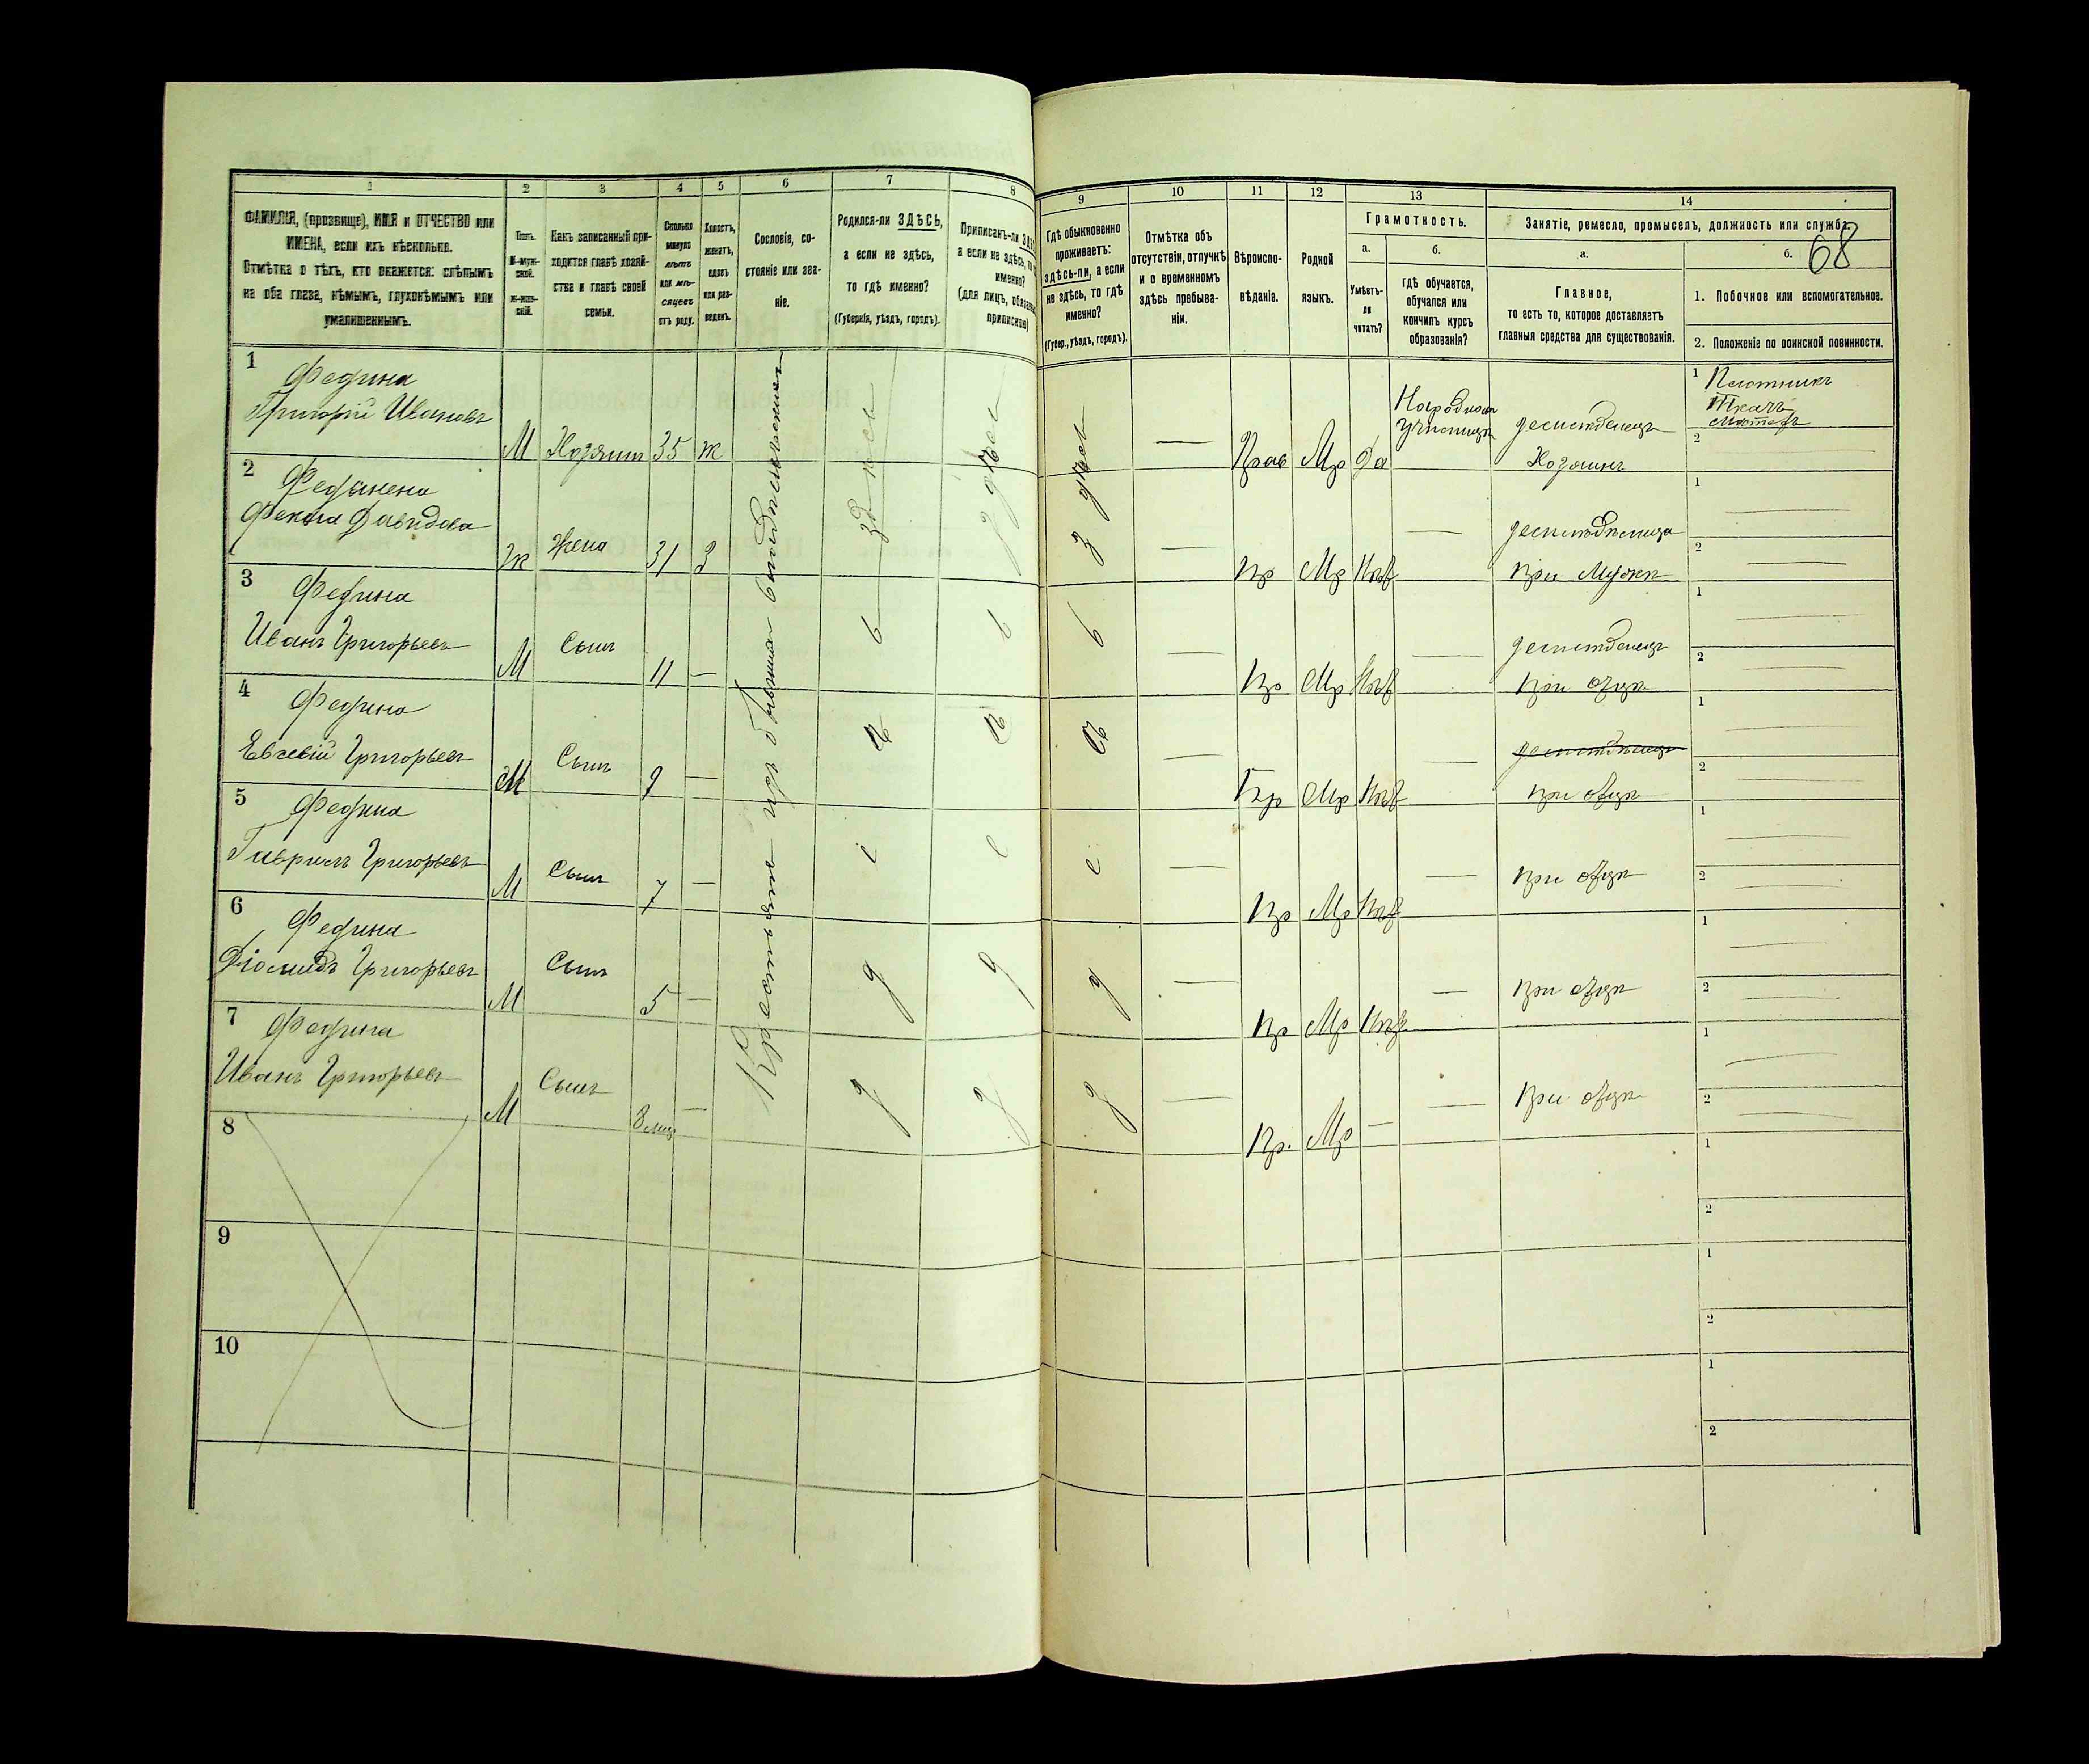 1 2 3 4 5 6 7 8
ФАМИЛІЯ, (прозвище), ИМЯ и ОТЧЕСТВО или
ИМЕНА, если ихъ нѣсколько.
Отмѣтка о тѣхъ, кто окажется: слѣпымъ
на оба глаза, нѣмымъ, глухонѣмымъ или
умалишеннымъ.
Полъ.
М-муж-
ской.
ж-жен-
скій.
Какъ записанный при-
ходится главѣ хозяй-
ства и главѣ своей
семьи.
Сколько
минуло
лѣтъ
или мѣ-
сяцевъ
отъ роду.
Холостъ,
женатъ,
вдовъ
или раз-
веденъ.
Сословіе, со-
стояніе или зва-
ніе.
Родился-ли ЗДѢСЬ,
а если не здѣсь,
то гдѣ именно?
(Губернія, уѣздъ, городъ).
Приписанъ-ли
а если не здѣсь,
именно?
(для лицъ,
9 10 11 12 13 14
Гдѣ обыкновенно
проживаетъ:
здѣсь-ли, а если
не здѣсь, то гдѣ
именно?
(Губер., уѣздъ, городъ).
Отмѣтка объ
отсутствіи, отлучкѣ
и о временномъ
здѣсь пребыва-
ніи.
Вѣроиспо-
вѣданіе.
Родной
языкъ.
Грамотность.
а.
Умѣетъ-
ли
читать?
б.
гдѣ обучается,
обучался или
кончилъ курсъ
образованія?
Занятіе, ремесло, промыселъ, должность или служба.
а.
Главное,
то есть то, которое доставляетъ
главныя средства для существованія.
б.
68
1. Побочное или вспомогательное.
2. Положеніе по воинской повинности.
1 Федина
Григорій Ивановъ М Хозяинъ 35 ж
здѣсь
Прав Мр да
Народном училищѣ
Хозяинъ
1 Плотникъ
Ткачъ
2
2
Ж Жена 31 З
Пр Мр Нѣт
при Мужѣ
1
2
3 Федина
Иванъ Григорьевъ М Сынъ 11 —
Пр Мр Нѣт
при отцѣ
1
2
4 Федина
Григорьевъ М Сынъ 9 —
Пр Мр Нѣт
при отцѣ
1
2
5 Федина
Гавріилъ Григорьевъ М Сынъ 7 —
Пр Мр Нѣт
при отцѣ
1
2
6 Федина
Діомидъ Григорьевъ М Сынъ 5 —
Пр Мр Нѣт
при отцѣ
1
2
7 Федина
Иванъ Григорьевъ М Сынъ 8 мѣц —
Пр. Мр —
при отцѣ
1
2
Крестьяне изъ бывших
8
1
2
9
1
2
10
1
2